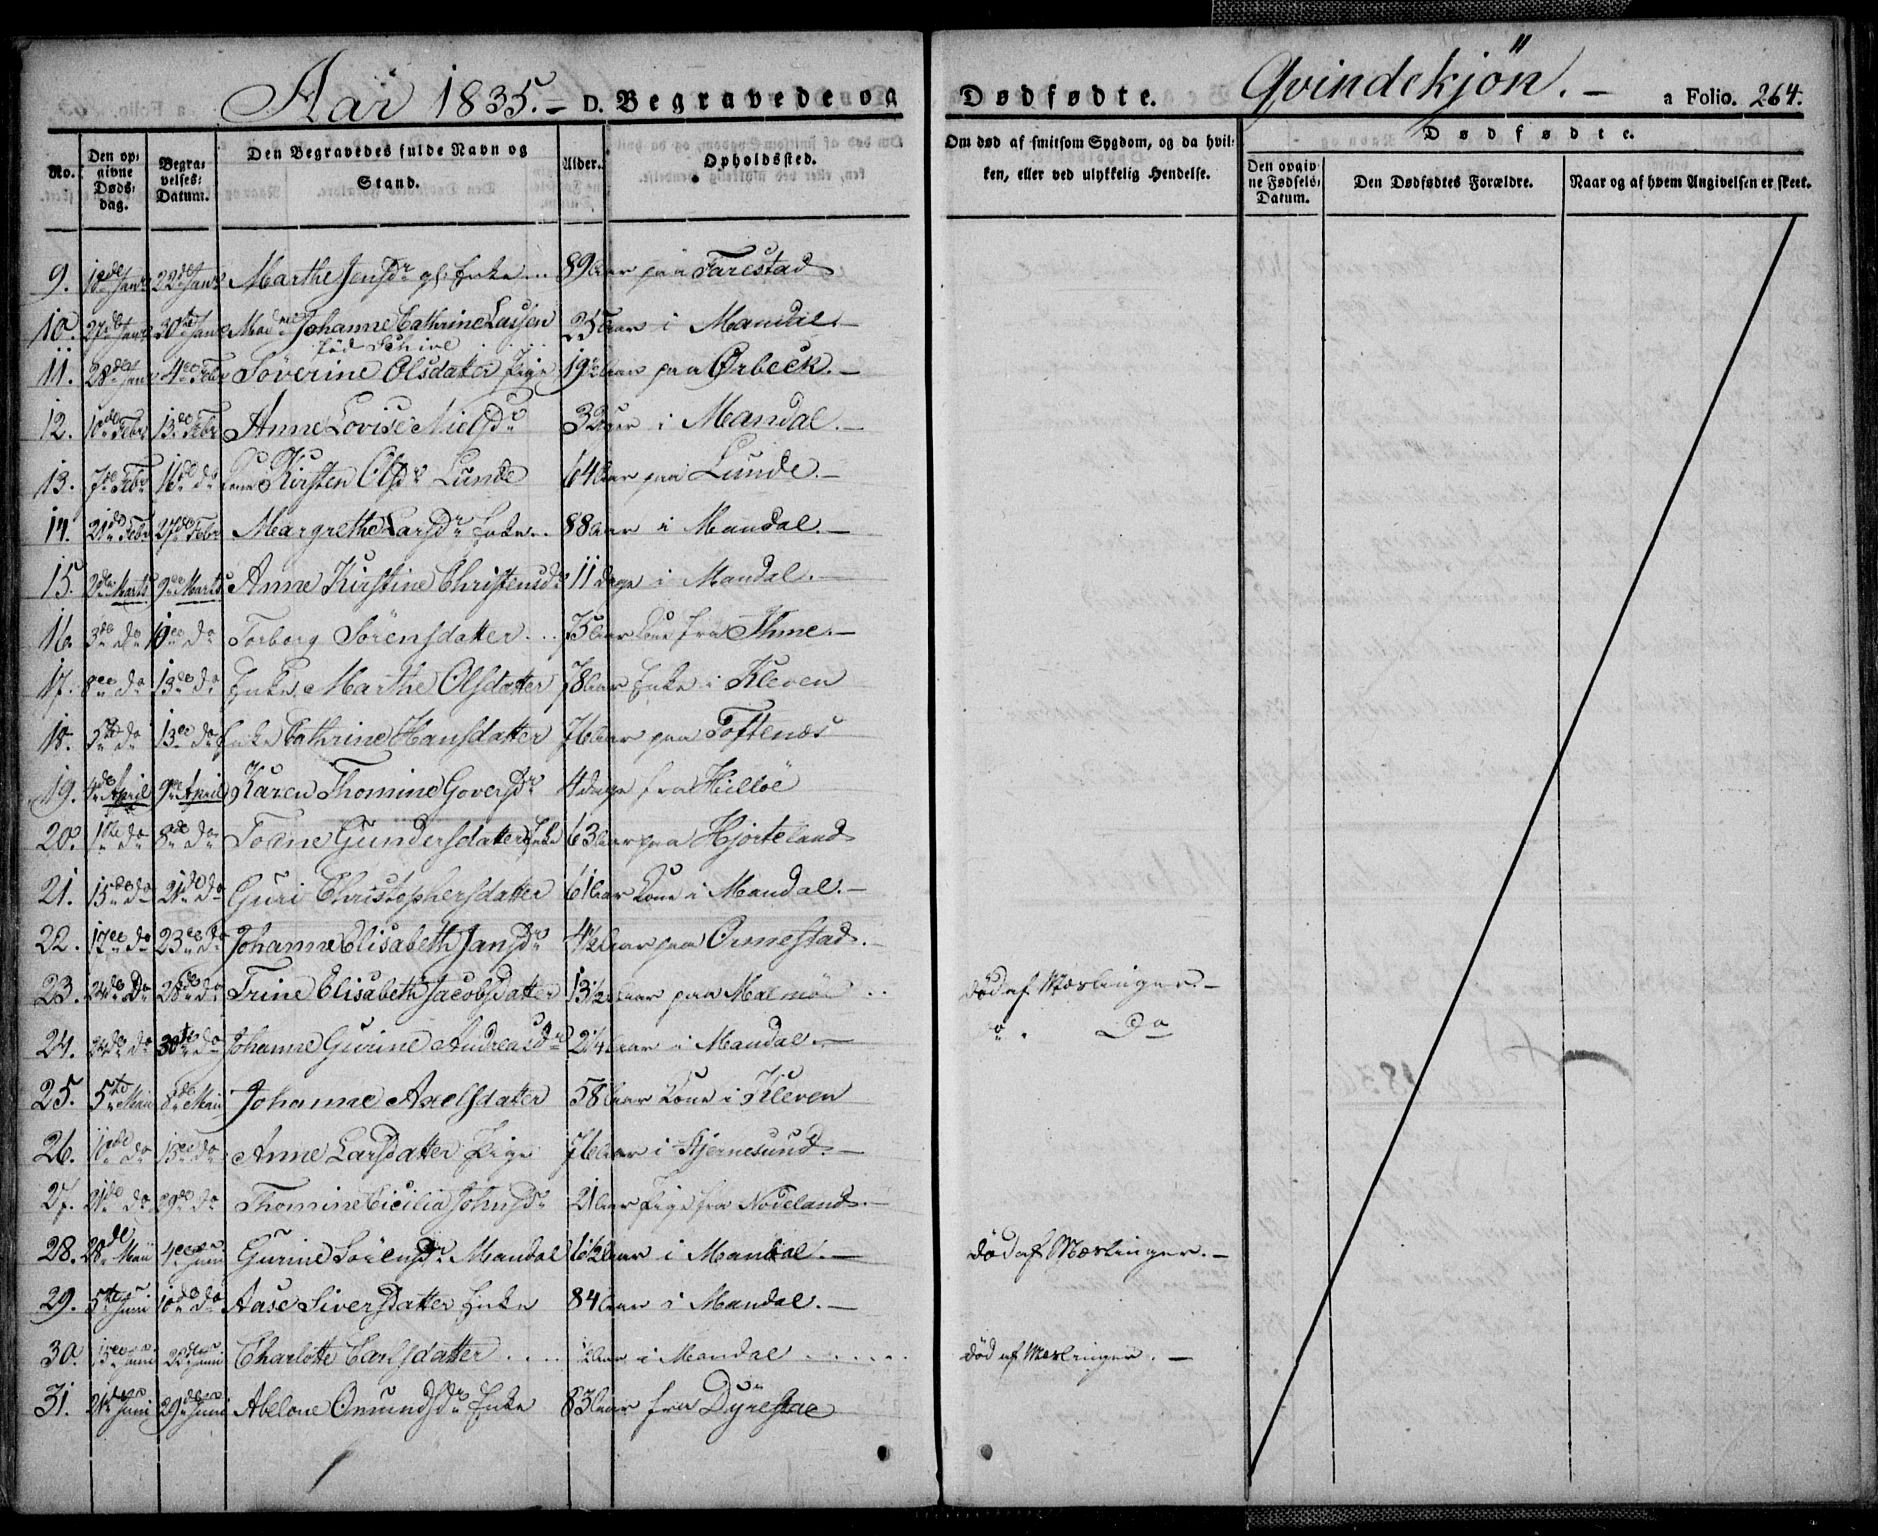 Aar 1835. – D. Begravede og Dødfødte. Qvindekjön. – a Folio. 264.
No. Den opgivne Dødsdag. Begravelses-Datum. Den Begravedes fulde Navn og Stand. Alder. Opholdssted. Om død af smitsom Sygdom, og da hvilken, eller ved ulykkelig Hendelse. Dødfødte. Den opgivne Fødsels-Datum. Den Dødfødtes Forældre. Naar og af hvem Angivelsen er skeet.
9. 18de Janr 22de Janr Marthe Jensdr gl. Enke ... 89 Aar paa Farestad
10. 27de Janr 30te Janr Madme Johanne Cathrine Lassen 25 Aar i Mandal. –
född Schive
11. 28de Janr 4de Febr Söverine Olsdatter Pige 19 Aar paa Ørbeck. –
12. 10de Febr 13de Febr Anne Lovise Nielsdr 32 Aar i Mandal. –
13. 7de Febr 16de do Kone Kirsten Olsdr Lunde 64 Aar paa Lunde. –
14. 21de Febr 27de Febr Margrethe Larsdr Enke .. 88 Aar i Mandal. –
15. 2den Marts 9de Marts Anne Kirstine Christensdr 11 dage i Mandal. –
16. 3de do 10de do Torborg Sörensdatter ... 75 Aar Kone fra Ihme. –
17. 8de do 13de do Enke Marthe Olsdatter 78 Aar Enke i Kleven
18. 5te do 13de do Enke Cathrine Hansdatter 76 Aar paa Toftenæs
19. 4de April 9de April Karen Thomine Goversdr 4 dage fra Hilløe
20. 1ste do 8de do Tomine Gundersdatter Enke 63 Aar paa Hjorteland
21. 15de do 21de do Guri Christophersdatter 61 Aar Kone i Mandal. –
22. 17de do 23de do Johanne Elisabeth Jansdr 4½ Aar paa Omestad. –
23. 24de Do 28de do Trine Elisabeth Jacobsdatter 13½ Aar paa Malmöe .. död af Mæslinger. –
24. 24de do 30te do Johanne Gurine Andreasdr 2¼ Aar i Mandal. – " " Do
25. 5te Mai 8de Mai Johanne Axelsdatter 58 Aar Kone i Kleven
26. 10de do 15de do Anne Larsdatter Pige 76 Aar i Skjernesund. –
27. 21de do 29de do Thomine Cicilia Johnsdr 21 Aar Pige fra Nodeland. –
28. 28de Mai 4de Juni Gurine Sörensdr Mandal 6½ Aar i Mandal. – död af Mæslinger. –
29. 5te Juni 10de do Aase Siversdatter Enke 84 Aar i Mandal. –
30. 15de Juni 22de Juni Charlotte Carlsdatter .... ½ Aar i Mandal ..... död af Mæslinger. –
31. 21de Juni 29de Juni Abelone Omundsdr Enke 83 Aar fra Dyrestad